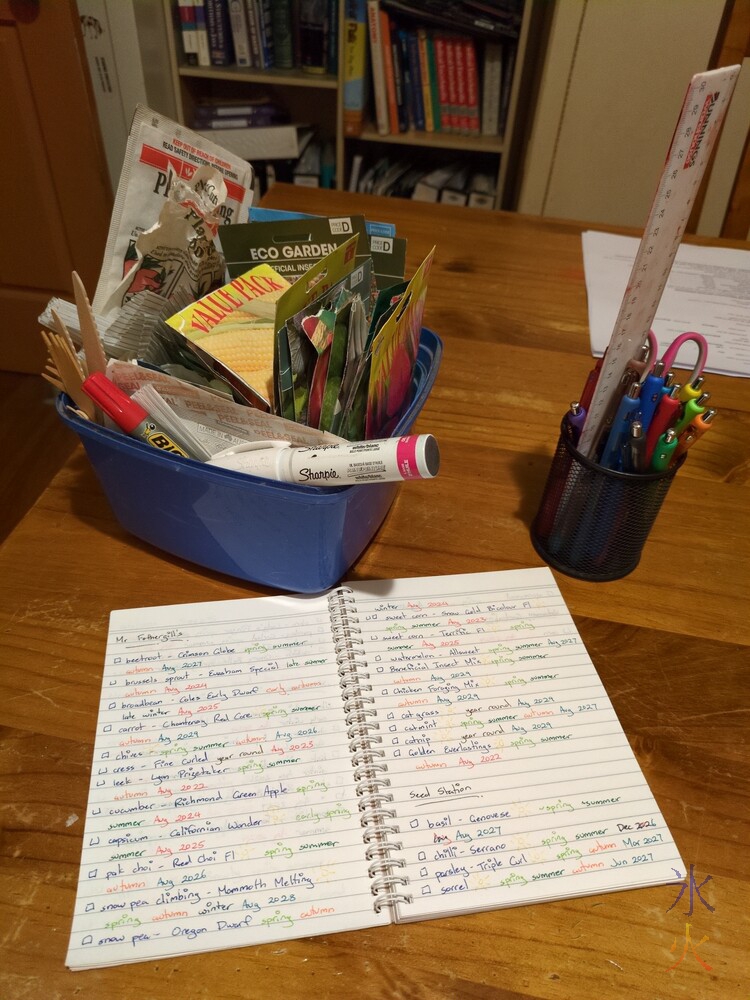 KEEP OUT OF REACH OF CHILDREN
READ SAFETY DIRECTIONS BEFORE OPENING
ECO GARDEN
VALUE PACK
D
D
BIC
Sharpie
PEEL
Mr Fothergill's
beetroot - Crimson Globe spring summer
autumn Aug 2027
brussels sprout - Evesham Special late summer
autumn Aug 2024
broadbean - Coles Early Dwarf early autumn
late winter Aug 2025
carrot - Chantenay Red Core spring summer
autumn Aug 2029
chives - spring summer autumn Aug 2026
cress - Fine Curled year round Aug 2025
leek - Lyon Prizetaker spring summer
autumn Aug 2022
cucumber - Richmond Green Apple spring
summer Aug 2029
capsicum - Californian Wonder early spring
summer Aug 2025
pak choi - Red Choi F1 spring summer
autumn Aug 2026
snow pea climbing - Mammoth Melting
spring autumn winter Aug 2028
snow pea - Oregon Dwarf spring autumn
winter Aug 2024
sweet corn - Snow Gold Bicolour F1
spring summer Aug 2023
sweet corn - Terrific F1 spring
summer Aug 2025
watermelon - Allsweet spring summer Aug 2027
Beneficial Insect Mix spring summer
autumn Aug 2029
Chicken Foraging Mix spring summer
autumn Aug 2029
catgrass year round Aug 2029
catmint spring summer autumn Aug 2027
catnip year round Aug 2029
Golden Everlastings spring summer
autumn Aug 2022
Seed Station
basil - Genovese spring summer
Aug 2027
chilli - Serrano spring summer Dec 2026
parsley - Triple Curl spring summer autumn Mar 2027
sorrel spring summer autumn Jun 2027
水
火